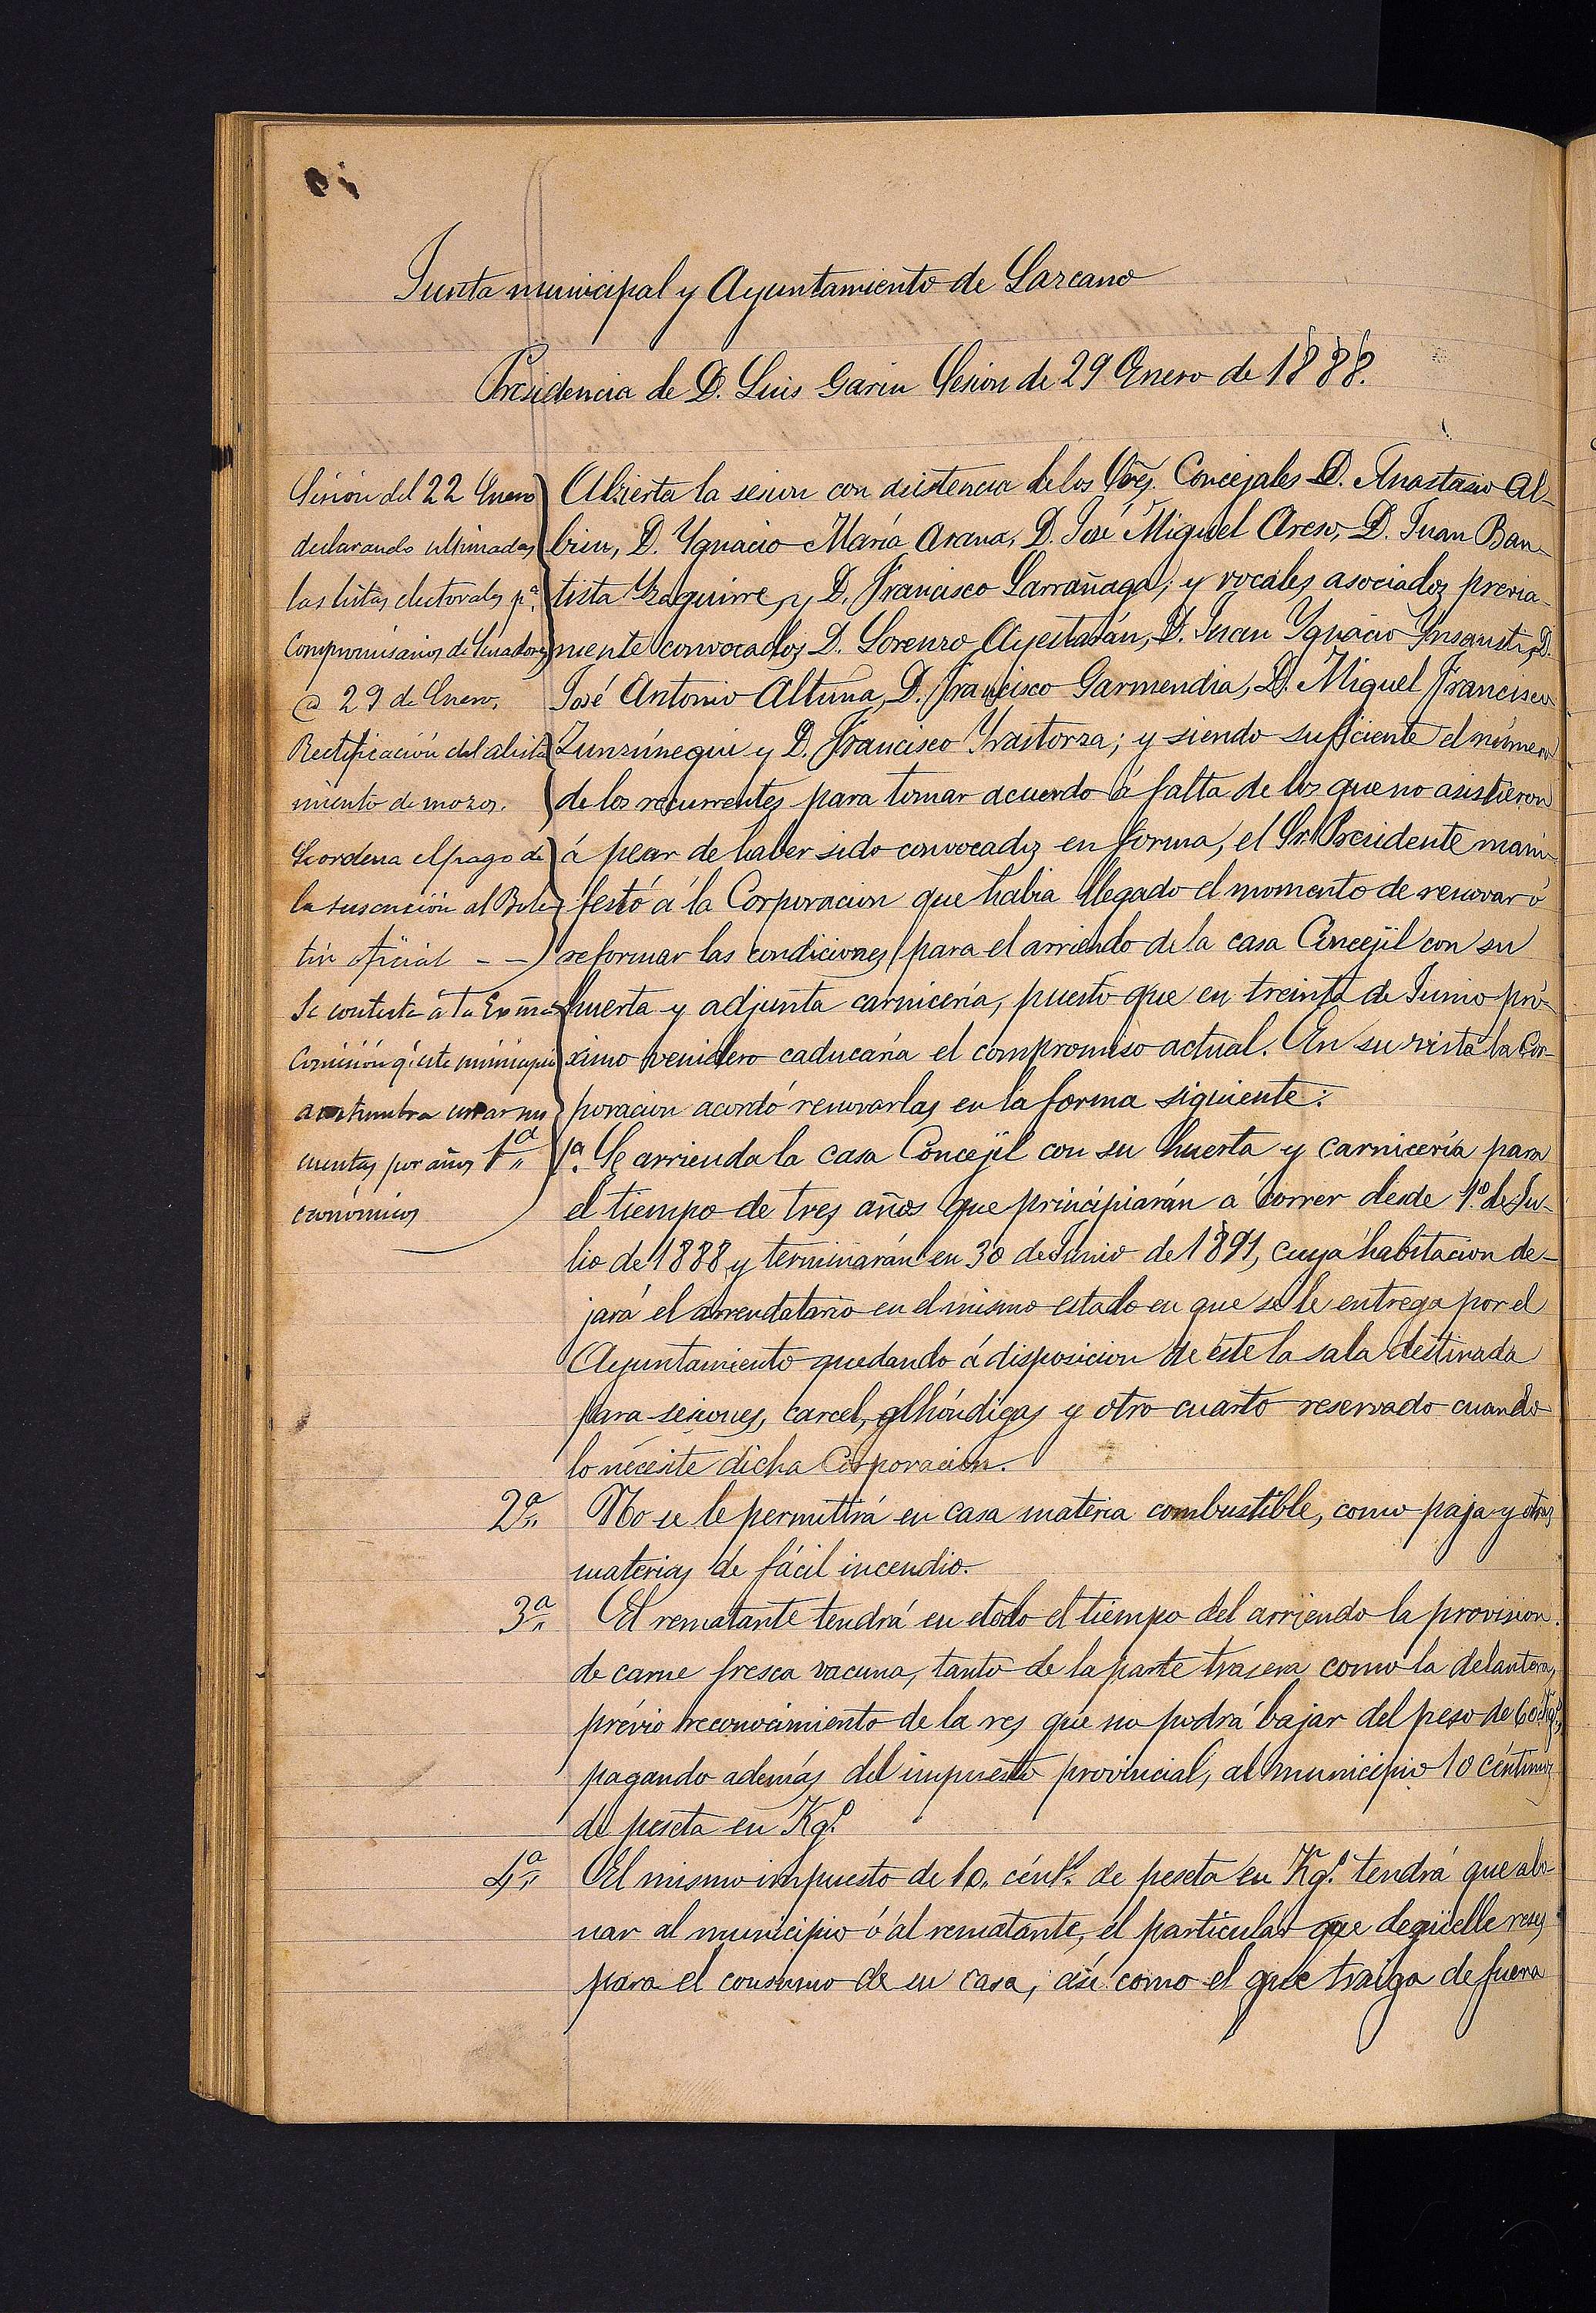 Junta municipal y Ayuntamiento de Lazcano
Presidencia de D. Luis Garin Sesion de 29 Enero de 1888.
Sesión del 22 Enero
declarando ultimadas
las listas electorales pª.
Compromisarios de Senadores
29 de Enero.
Rectificación del alista
miento de mozos.
Se ordena el pago de
la suscrición al Bole
tín oficial - -
Se contesta á la Exma
Comisión q. este municipio
acostumbra sus
cuentas por años
económicos
Abierta la sesion con asistencia de los Sres. Concejales D. Anastasio Al-
bisu, D. Ygnacio María Arana, D. José Miguel Areso, D. Juan Bau-
tista Yzaguirre, y D. Francisco Larrañaga; y vocales asociados previa-
mente convocados D. Lorenzo Ayestarán, D. Juan Ygnacio Ynsausti, D.
José Antonio Altuna, D. Francisco Garmendia, D. Miguel Francisco
Zunzúnegui y D. Francisco Yrastorza; y siendo suficiente el número
de los recurrentes para tomar acuerdo á falta de los que no asistieron
á pesar de haber sido convocados en forma, el Sr. Presidente mani-
festó á la Corporacion que habia llegado el momento de renovar ó
reformar las condiciones para el arriendo de la casa Concejil con su
huerta y adjunta carnicería, puesto que en treinta de Junio pró-
ximo venidero caducaría el compromiso actual. En su vista la Cor-
poracion acordó renovarlas en la forma siguiente:
1ª 1ª. Se arrienda la casa Concejil con su huerta y carnicería para
el tiempo de tres años que principiarán a correr desde 1º. de Ju-
lio de 1888 y terminarán en 30 de Junio de 1891, cuya habitacion de-
jará el arrendatario en el mismo estado en que se le entrega por el
Ayuntamiento quedando á disposicion de éste la sala destinada
para sesiones, carcel, alhóndigas y otro cuarto reservado cuando
lo necesite dicha Corporacion.
2ª No se le permitirá en casa materia combustible, como paja y otras
materias de fácil incendio.
3ª El rematante tendrá en todo el tiempo del arriendo la provision
de carne fresca vacuna, tanto de la parte trasera como la delantera,
prévio reconocimiento de la res que no podrá bajar del peso de 60 Kgs,
pagando además del impuesto provincial, al municipio 10 céntimos
de peseta en Kgº
4ª El mismo impuesto de 10 cénts. de peseta en Kgº. tendrá que abo-
nar al municipio ó al rematante, el particular que degüelle reses
para el consumo de su casa, asi como el que traiga de fuera